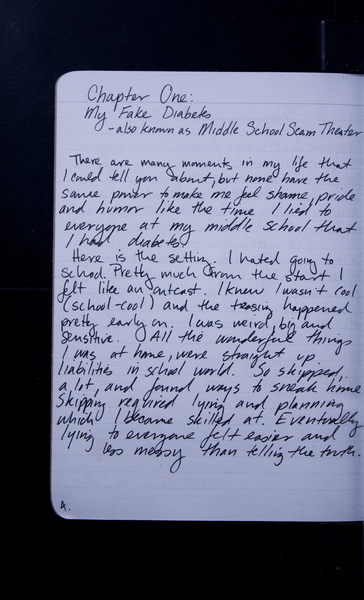 Chapter One:
My Fake Diabetes
- also known as Middle School Scam Theater
There are many moments in my life that
I could tell you about, but none have the
same power to make me feel shame, pride
and humor like the time I lied to
everyone at my middle school that
I had diabetes
Here is the setting. I hated going to
school. Pretty much from the start I
felt like an outcast. I knew I wasn't cool
(school-cool) and the teasing happened
pretty early on. I was weird, big and
sensitive. All the wonderful things
I was at home, were straight up
liabilities in school world. So skipped,
a lot, and found ways to sneak home
Skipping required lying and planning
which I became skilled at. Eventually
lying to everyone felt easier and
less messy than telling the truth.
4.